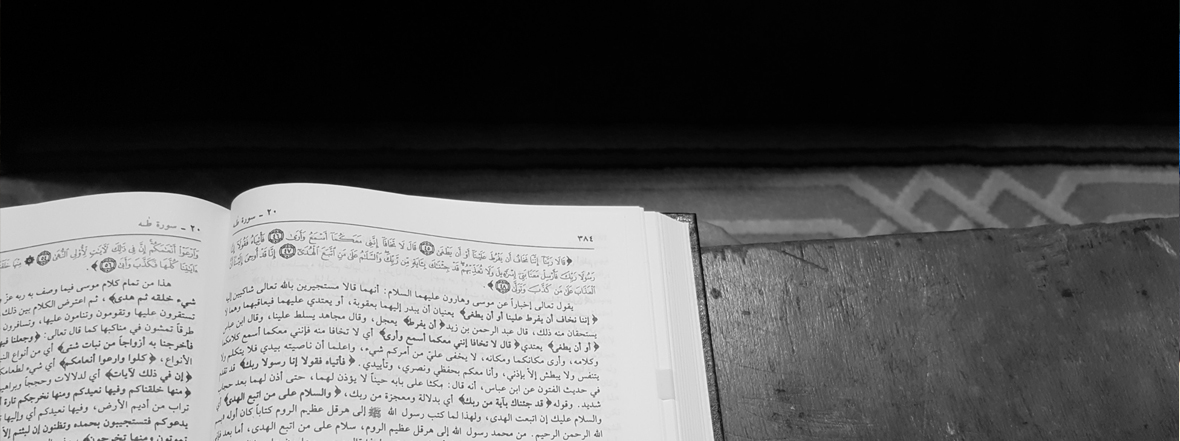 ٣٨٤
٢٠ - سورة طه
﴿قَالَا رَبَّنَا إِنَّنَا نَخَافُ أَن يَفْرُطَ عَلَيْنَا أَوْ أَن يَطْغَى (٤٥) قَالَ لَا تَخَافَا إِنَّنِي مَعَكُمَا أَسْمَعُ وَأَرَى (٤٦) فَأْتِيَاهُ فَقُولَا إِنَّا
رَسُولَا رَبِّكَ فَأَرْسِلْ مَعَنَا بَنِي إِسْرَائِيلَ وَلَا تُعَذِّبْهُمْ قَدْ جِئْنَاكَ بِآيَةٍ مِّن رَّبِّكَ وَالسَّلَامُ عَلَى مَنِ اتَّبَعَ الْهُدَى (٤٧) إِنَّا قَدْ أُوحِيَ إِلَيْنَا أَنَّ
الْعَذَابَ عَلَى مَن كَذَّبَ وَتَوَلَّى (٤٨)﴾
يقول تعالى إخباراً عن موسى وهارون عليهما السلام: أنهما قالا مستجيرين بالله تعالى شاكيين إليه
﴿إننا نخاف أن يفرط علينا أو أن يطغى﴾ يعنيان أن يبدر إليهما بعقوبة، أو يعتدي عليهما فيعاقبهما وهما لا
يستحقان منه ذلك، قال عبد الرحمن بن زيد ﴿أن يفرط﴾ يعجل، وقال مجاهد يسلط علينا، وقال ابن عباس
﴿أو أن يطغى﴾ يعتدي ﴿قال لا تخافا إنني معكما أسمع وأرى﴾ أي لا تخافا منه فإنني معكما أسمع كلامكما
وكلامه، وأرى مكانكما ومكانه، لا يخفى علي من أمركم شيء، واعلما أن ناصيته بيدي فلا يتكلم ولا
يتنفس ولا يبطش إلا بإذني، وأنا معكم بحفظي ونصري، وتأييدي. ﴿فأتياه فقولا إنا رسولا ربك﴾ قد تقدم
في حديث الفتون عن ابن عباس، أنه قال: مكثا على بابه حيناً لا يؤذن لهما، حتى أذن لهما بعد حجاب
شديد. وقوله ﴿قد جئناك بآية من ربك﴾ أي بدلالة ومعجزة من ربك، ﴿والسلام على من اتبع الهدى﴾ أي
والسلام عليك إن اتبعت الهدى، ولهذا لما كتب رسول الله ﷺ إلى هرقل عظيم الروم كتاباً كان أوله بسم
الله الرحمن الرحيم. من محمد رسول الله إلى هرقل عظيم الروم، سلام على من اتبع الهدى، أما بعد
٢٠ - سورة طه
وَارْعَوْا أَنْعَامَكُمْ إِنَّ فِي ذَلِكَ لَآيَاتٍ لِّأُولِي النُّهَى (٥٤)
آيَاتِنَا كُلَّهَا فَكَذَّبَ وَأَبَى (٥٦)﴾
هذا من تمام كلام موسى فيما وصف به ربه
شيء خلقه ثم هدى﴾، ثم اعترض الكلام بين ذلك
تستقرون عليها وتقومون وتنامون عليها، وتسافرون
طرقاً تمشون في مناكبها كما قال تعالى: ﴿وجعلنا
فأخرجنا به أزواجاً من نبات شتى﴾ أي من أنواع
الأنواع، ﴿كلوا وارعوا أنعامكم﴾ أي شيء
﴿إن في ذلك لآيات﴾ أي لدلالات وحججاً
﴿منها خلقناكم وفيها نعيدكم ومنها نخرجكم تارة
تراب من أديم الأرض، وفيها نعيدكم أي وإليها
يدعوكم فتستجيبون بحمده وتظنون إن لبثتم إلا
تموتون ومنها تخرجون﴾